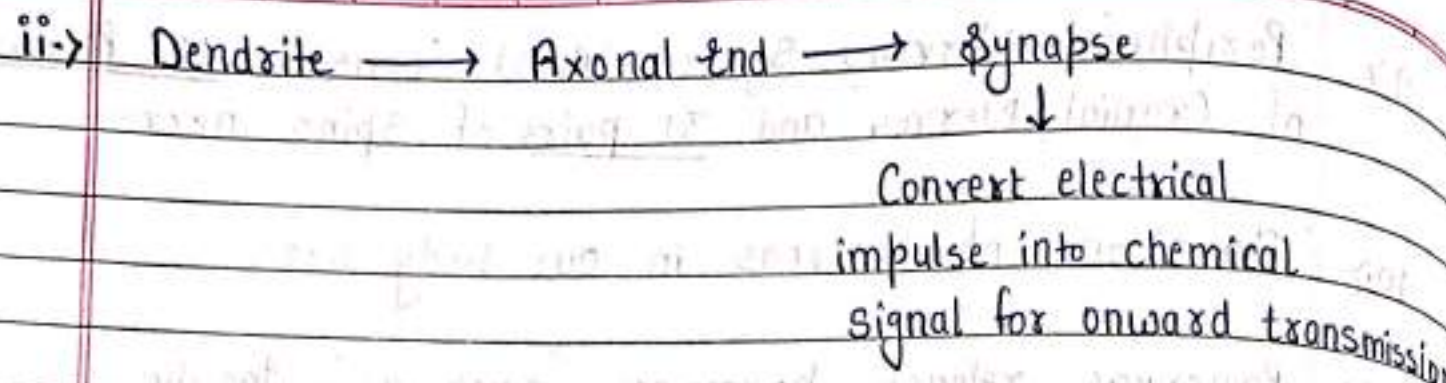 ii.> Dendrite → Axonal End → Synapse
↓
Convert electrical
impulse into chemical
signal for onward transmission